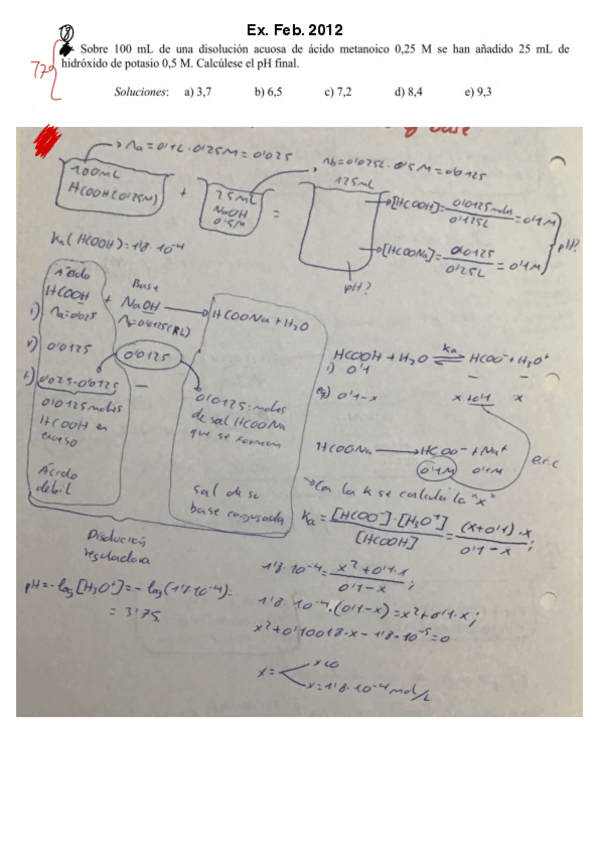 Ex. Feb. 2012
18
77g
Sobre 100 mL de una disolución acuosa de ácido metanoico 0,25 M se han añadido 25 mL de
hidróxido de potasio 0,5 M. Calcúlese el pH final.
Soluciones: a) 3,7 b) 6,5 c) 7,2 d) 8,4 e) 9,3
base
na=0'1L·0'25M=0'025
nb=0'025L·0'5M=0'0125
100mL
HCOOH(0'25M)
+
25mL
NaOH
0'5M
=
125mL
[HCOOH]=0'0125moles/0'125L=0'1M
[HCOONa]=0'0125/0'125L=0'1M
pH?
pH?
Ka(HCOOH)=1'8·10⁻⁴
Ácido
HCOOH + Base NaOH → HCOONa+H₂O
i) na=0'025 nb=0'0125(RL)
r) 0'0125 0'0125
f) 0'025-0'0125 —
0'0125moles
HCOOH en
exceso
Ácido
débil
0'0125 moles
de sal HCOONa
que se forman
sal de su
base conjugada
Disolución
reguladora
pH=-log[H₃O⁺]=-log(1'8·10⁻⁴)=
= 3'75
HCOOH+H₂O ⇌ Ka HCOO⁻+H₃O⁺
i) 0'1 — —
eq) 0'1-x x+0'1 x
HCOONa → HCOO⁻+Na⁺
0'1M 0'1M
e.i.c
Con la k se calcula la "x"
Ka=[HCOO⁻]·[H₃O⁺]/[HCOOH]=(x+0'1)·x/0'1-x;
1'8·10⁻⁴=x²+0'1·x/0'1-x;
1'8·10⁻⁴·(0'1-x)=x²+0'1·x;
x²+0'10018·x-1'8·10⁻⁵=0
x= x<0
x=1'8·10⁻⁴mol/L